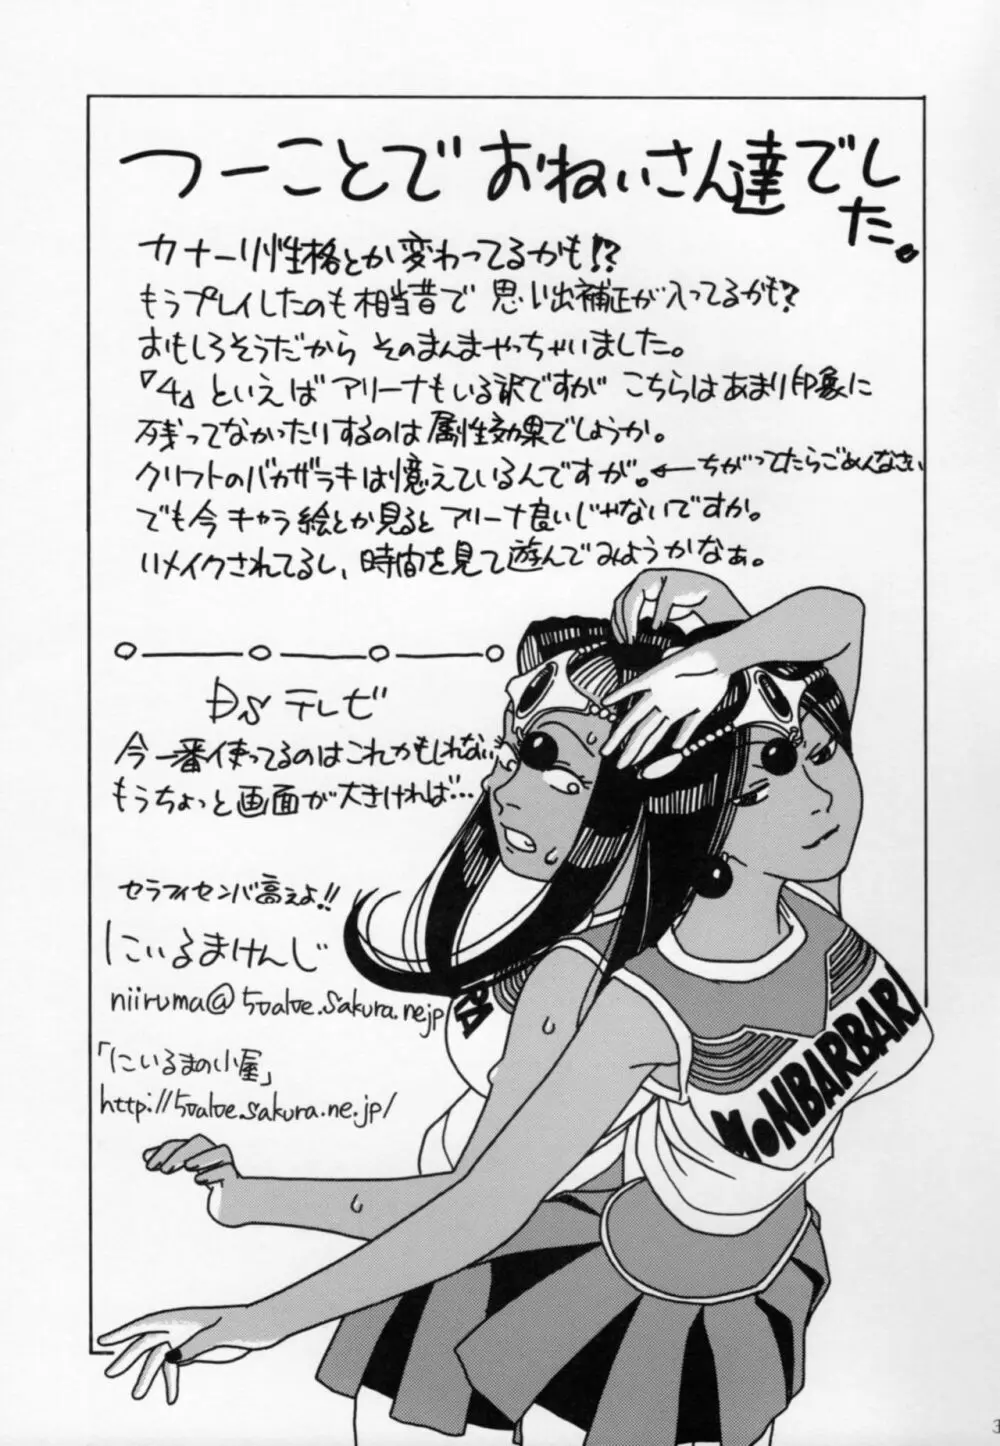 つーことでおねぃさん達でした。
カナーリ性格とか変わってるかも!?
もうプレイしたのも相当昔で 思い出補正が入ってるかも?
おもしろそうだから そのまんまやっちゃいました。
『4』といえば アリーナもいる訳ですが こちらはあまり印象に
残ってなかったりするのは属性効果でしょうか。
クリフトのバカザラキは憶えているんですが。←ちがってたらごめんなさい
でも今キャラ絵とか見ると アリーナ良いじゃないですか。
リメイクされてるし、時間を見て遊んでみようかなぁ。
DSテレビ
今一番使ってるのはこれかもしれない
もうちょっと画面が大きければ…
セラフィセンバ高えよ!!
にいるまけんじ
niiruma@5value.sakura.ne.jp
「にいるまの小屋」
http://5value.sakura.ne.jp/
RA
MoNBARBARA
3